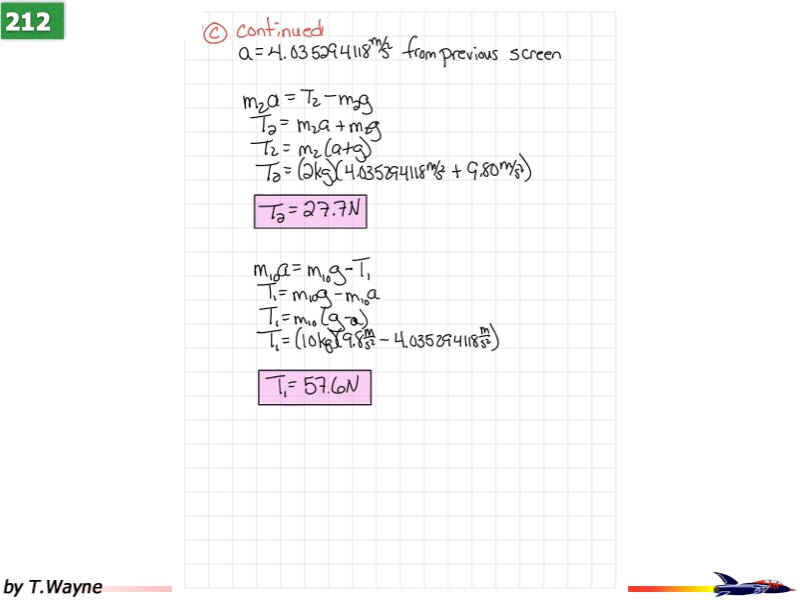 212
ⓒ continued
a = 4.035294118 m/s² from previous screen
m₂a = T₂ - m₂g
T₂ = m₂a + m₂g
T₂ = m₂(a+g)
T₂ = (2kg)(4.035294118 m/s² + 9.80 m/s²)
T₂ = 27.7N
m₁₀a = m₁₀g - T₁
T₁ = m₁₀g - m₁₀a
T₁ = m₁₀(g-a)
T₁ = (10kg)(9.8 m/s² - 4.035294118 m/s²)
T₁ = 57.6N
by T.Wayne